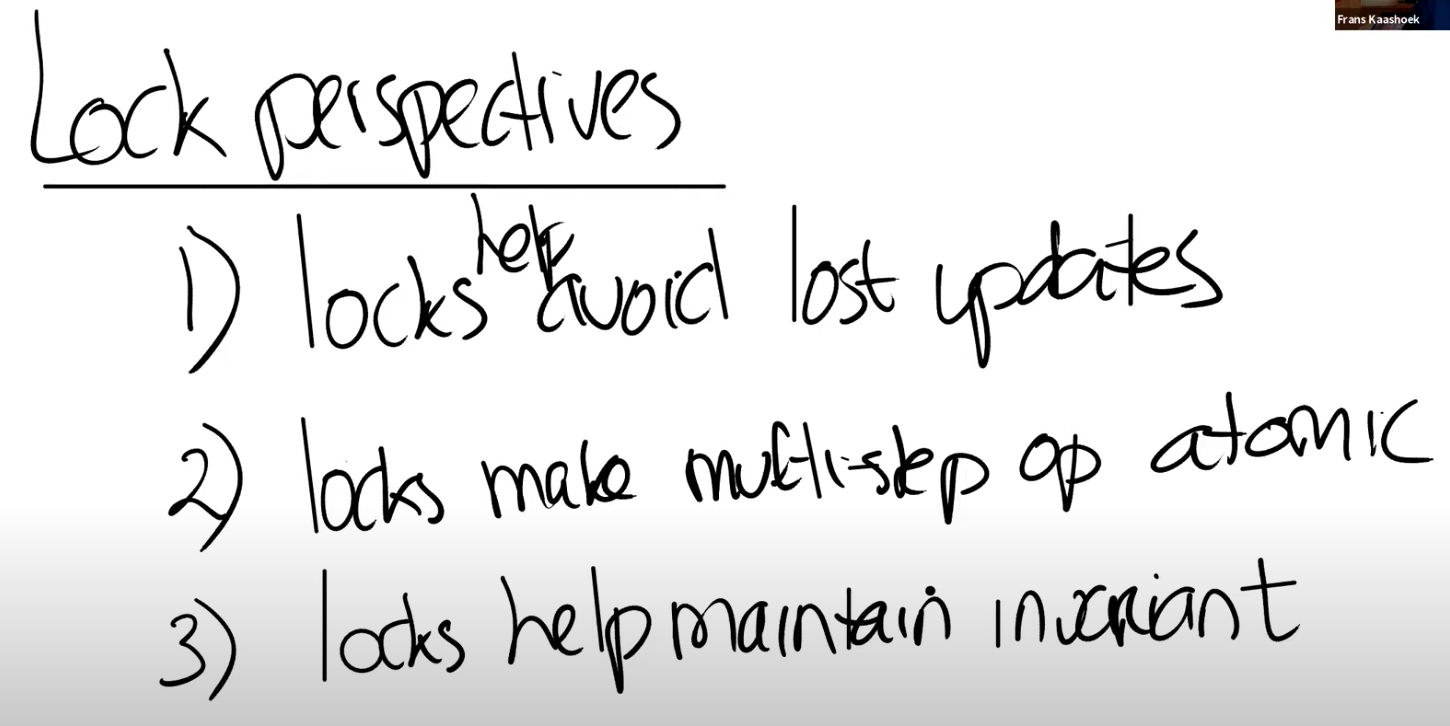 Frans Kaashoek
Lock perspectives
1) locks help avoid lost updates
2) locks make multi-step op atomic
3) locks help maintain invariant